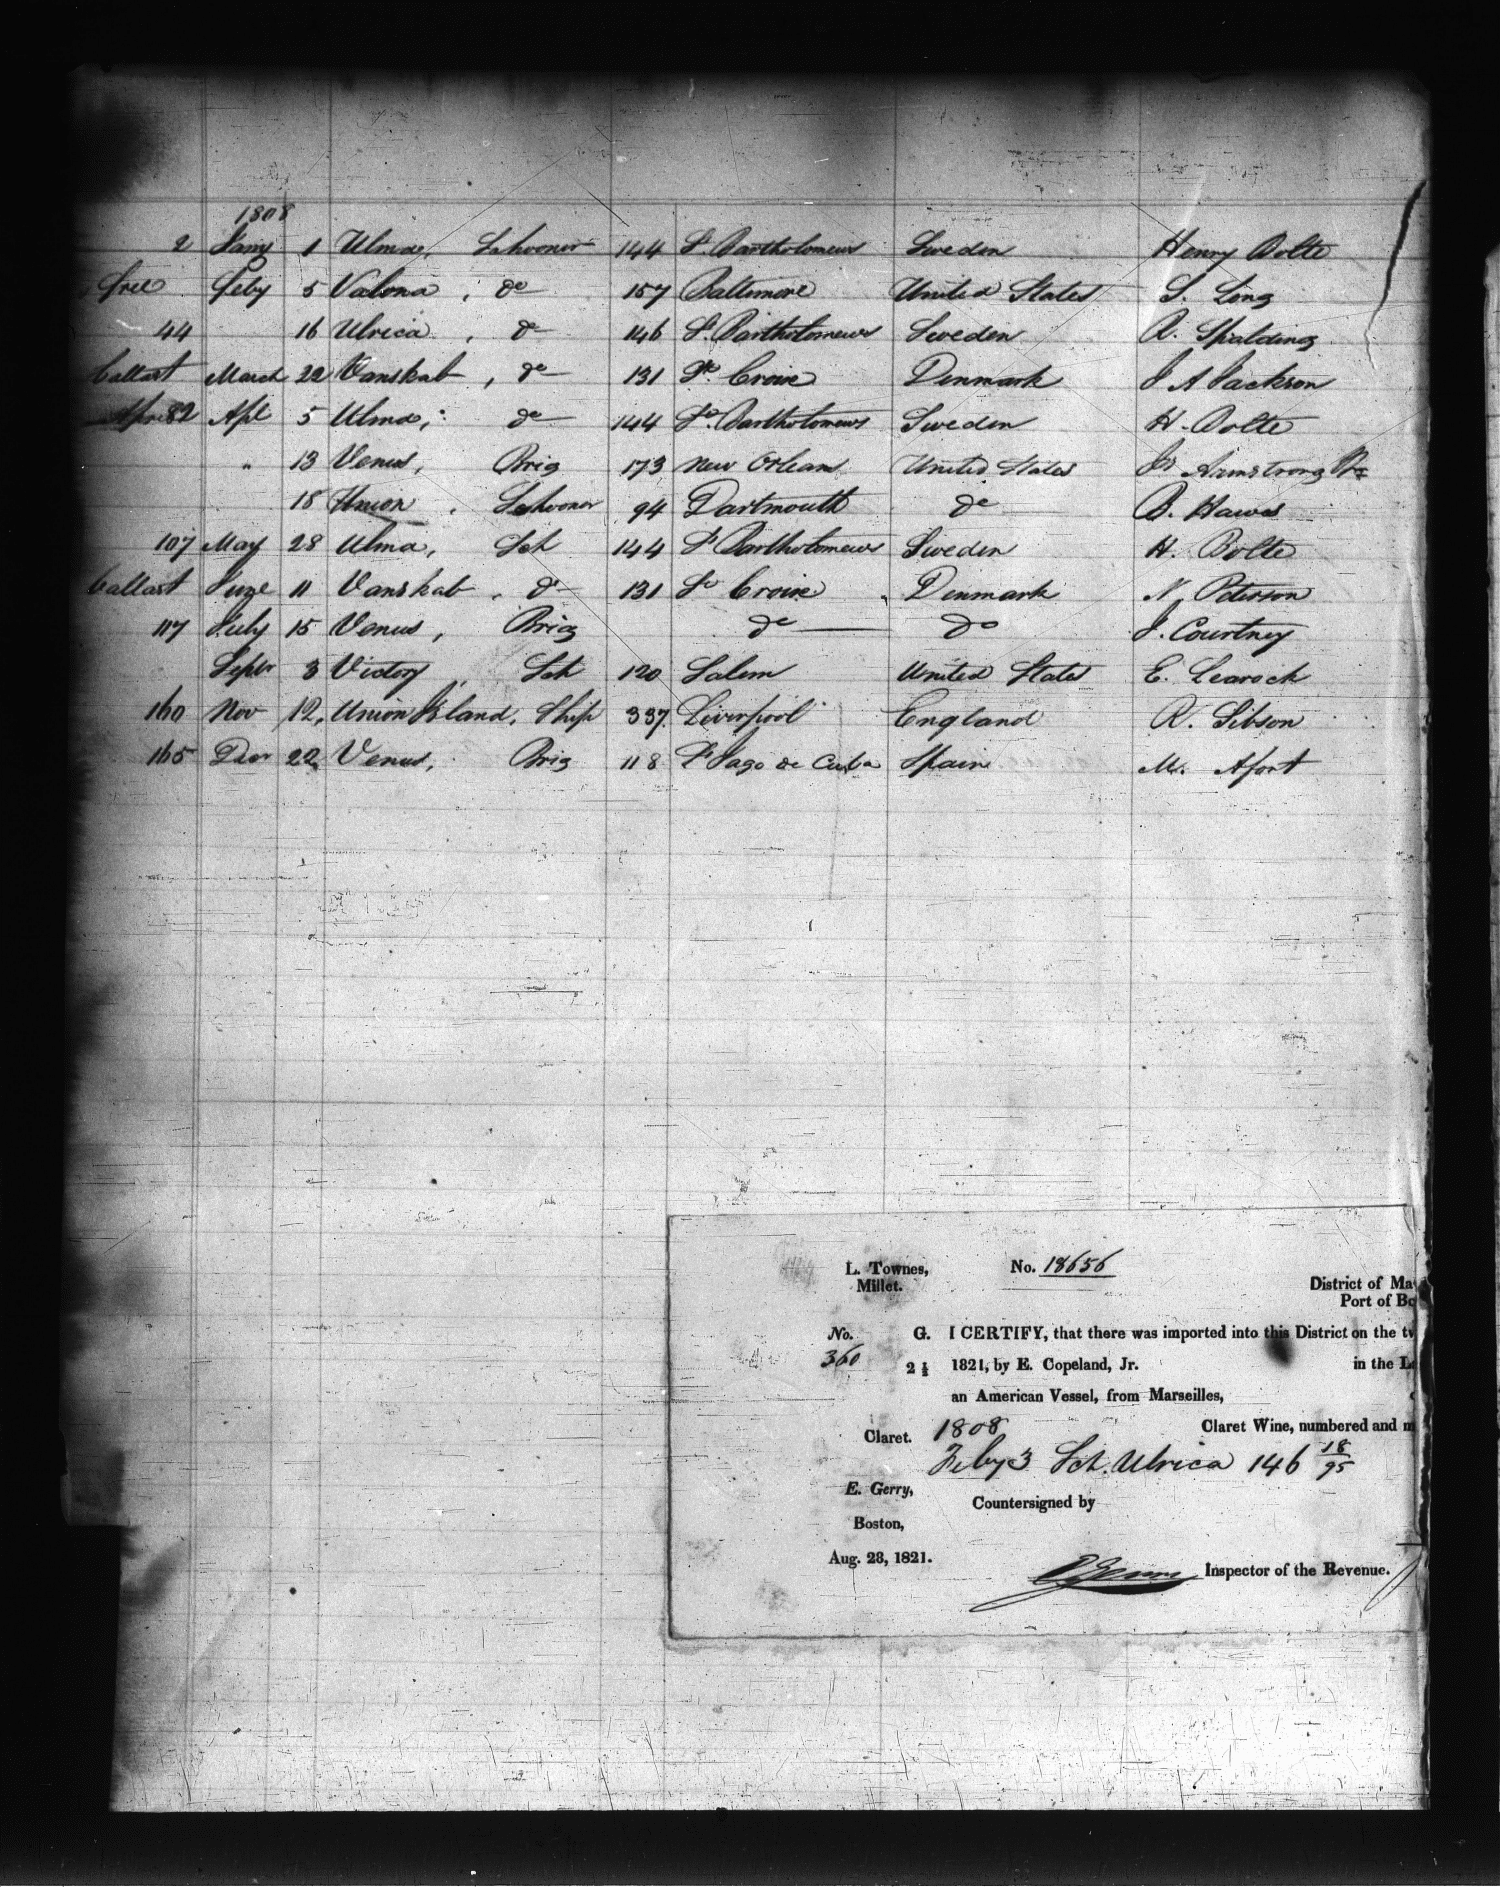 1808
2 Jany 1 Ulma, Schooner 144 St. Bartholomews Sweden Henry Bolte
free Feby 5 Valona, do 157 Baltimore United States S. Long
44 16 Ulrica, do 146 St. Bartholomews Sweden R. Spalding
ballast March 22 Vanskab, do 131 St. Croix Denmark J A Jackson
82 Apl 5 Ulma, do 144 St. Bartholomews Sweden H. Bolte
" 13 Venus, Brig 173 New Orleans United States Js Armstrong
18 Union, Schooner 94 Dartmouth do B. Hawes
107 May 28 Ulma, Sch 144 St Bartholomews Sweden H. Bolte
ballast June 11 Vanskab, do 131 St Croix Denmark N. Peterson
117 July 15 Venus, Brig do do J. Courtney
Sepbr 3 Victory, Sch 120 Salem United States E. Learock
160 Nov 12, Union Island, Ship 337 Liverpool England R. Sibson
165 Decr 22 Venus, Brig 118 St Jago de Cuba Spain M. Afort
L. Townes,
Millet.
No. 18656
District of Ma
Port of Bo
No.
360
G. I CERTIFY, that there was imported into this District on the tw
2 ½ 1821, by E. Copeland, Jr. in the L
an American Vessel, from Marseilles,
Claret. 1808 Claret Wine, numbered and m
Feby 3 Sch. Ulrica 146 18/95
E. Gerry,
Countersigned by
Boston,
Aug. 23, 1821.
Inspector of the Revenue.